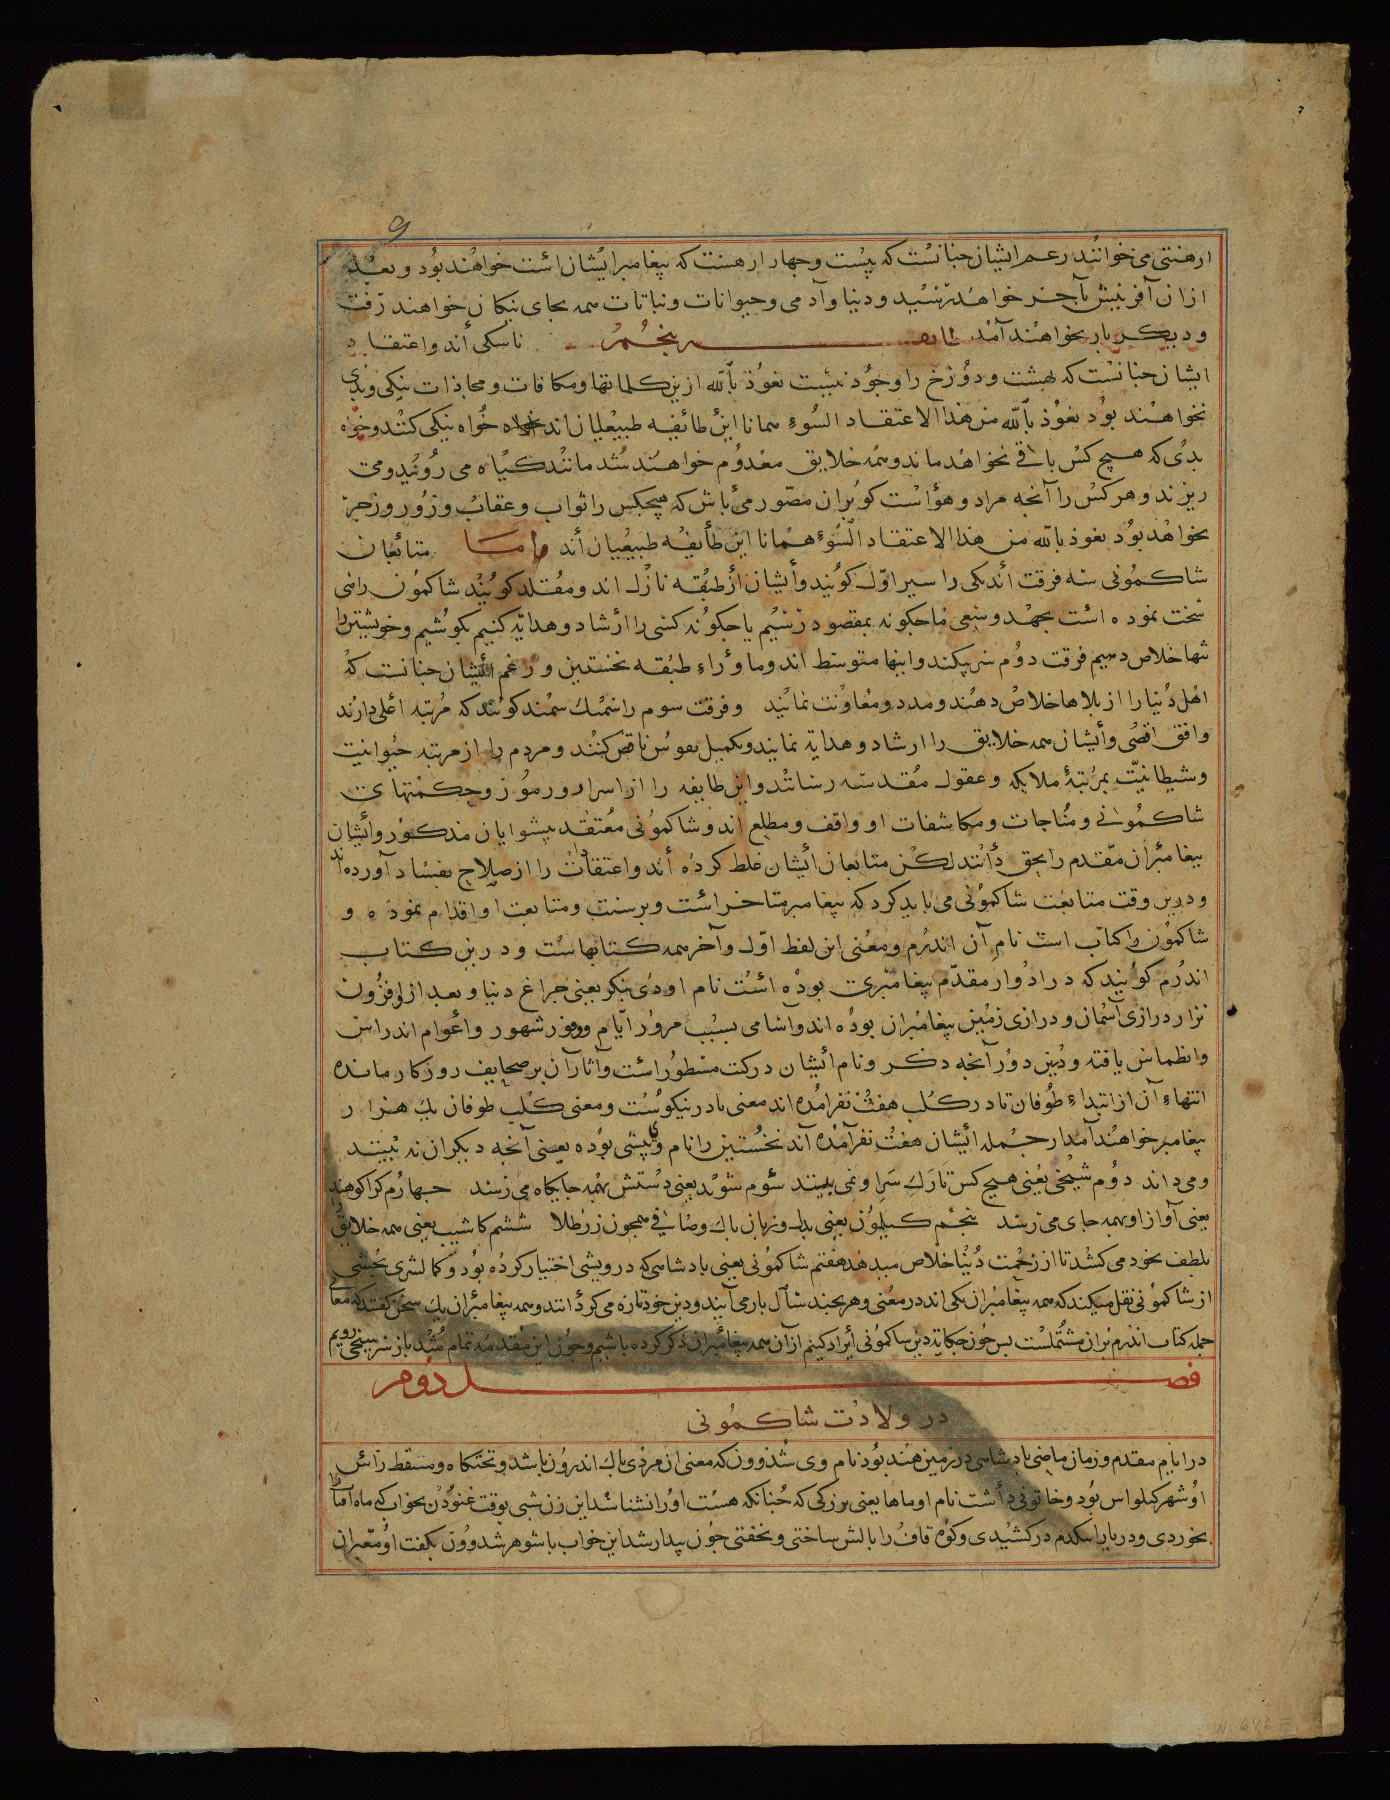 ارهنتی می خوانند زعم ایشان چنانست که بیست و چهار ارهنت که پیغامبر ایشان است خواهند بود و بعد
ازان آفرینش بآخر خواهد رسید و دنیا و آدمی و حیوانات و نباتات همه بجای نیکان خواهند رفت
و دیکر بار بخواهند آمد طایفه پنجم ناسکی اند و اعتقاد
ایشان چنانست که بهشت و دوزخ را وجود نیست نعوذ بالله ازین کلماتها و مکافات و مجاذات نیکی و بدی
نخواهند بود نعوذ بالله من هذا الاعتقاد السوء همانا این طائفیه طبیعیان اند خواه نیکی کنند و خواه
بدی که هیچ کس باقی نخواهد ماند و همه خلایق معدوم خواهند شد مانند کیاه می روئید و می
ریزند و هر کس را آنجه مراد و هواست کو بران مصور می باش که هیچکس را ثواب و عقاب و زور و زجر
نخواهد بود نعوذ بالله من هذا الاعتقاد السوء همانا این طایفیه طبیعیان اند و اما متابعان
شاکمونی سه فرقت اند یکی را سیر اول کویند و ایشان از طبقه نازل اند و مقلد کویند شاکمون راهی
سخت نموده است بجهد و سعی ما جکونه بمقصود رسیم یا جکونه کسی را ارشاد و هدایه کنیم بکوشیم و خویشتن را
تنها خلاص دهیم فرقت دوم سر پیکند و اینها متوسط اند و ماوراء طبقه نخستین و زعم ایشان جنانست که
اهل دنیا را از بلاها خلاص دهند و مدد و معاونت نمائید و فرقت سوم را سمنک سمند کویند که مرتبه اعلی دارند
و افق اقصی و ایشان همه خلایق را ارشاد و هدایه نمایند و تکمیل نفوس ناقص کنند و مردم را از مرتبه حیوانیت
و شیطانیت بمرتبه ملایکه و عقول مقدسه رسانند و این طایفه را از اسرار و رموز و حکمتهای
شاکمونی و مناجات و مکاشفات او واقف و مطلع اند و شاکمونی معتقد پیشوایان مذکور و ایشان
پیغامبران مقدم را بحق دانند لکن متابعان ایشان غلط کرده اند و اعتقادات را از صلاح بفساد آورده اند
و درین وقت متابعت شاکمونی می باید کرد که پیغامبر متاخر است و بر سنت و متابعت او اقدام نموده و
شاکمون را کتاب است نام آن اندرم و معنی این لفظ اول و آخر همه کتابهاست و درین کتاب
اندرم کویند که در ادوار مقدم پیغامبری بوده است نام او دی بنکر یعنی جراغ دنیا و بعد ازو فزون
نزار درازی آسمان و درازی زمین پیغامبران بوده اند و آسامی بسبب مرور ایام و مرور شهور و اعوام اندراس
و انطماس یافته و دین دور آنجه ذکر و نام ایشان در کتب مسطور است و آثار آن بر صحایف روزکار مانده
انتهاء آن از ابتداء طوفان تا در کلب هفت نفر آمده اند معنی نادر نیکوست و معنی کلب طوفان یک هزار
پیغامبر خواهند آمد از جمله ایشان هفت نفر آمده اند نخستین را نام وپشی بوده یعنی آنجه دیکران نه بینند
و می داند دوم شیخی یعنی هیج کس تارک سر او نمی بینند سوم شوید یعنی دستش بهمه جایکاه می رسند جهارم کراکوهند
یعنی آواز او بهمه جای می رسد پنجم کیلمون یعنی بدل و زبان باک و صافی همجون زر طلا ششم کاشیب یعنی همه خلایق را
بلطف بخود می کشد تا از زحمت دنیا خلاص میدهد هفتم شاکمونی یعنی بادشاهی که درویشی اختیار کرده بود و کمالشری بخشی
از شاکمونی نقل میکند که همه پیغامبران یکی اند در معنی و هر بجند سال باز می آیند و دین خود تازه می کردانند و همه پیغامبران یک سخن کفتند که معانی
جمله کتاب اندرم بران مشتملست بس جون حکایه دین ساکمونی ایراد کینم از آن همه پیغامبران ذکر کرده باشیم و جون این مقدمه تمام شد باز سر سخن رویم
فصل دوم
در ولادت شاکمونی
در ایام مقدم و زمان ماضی بادشاهی در زمین هند بود نام وی شدوون که معنی ان مردی باک اندرون باشد و تختکاه و مسقط راس
او شهر کیلواس بود و خاتونی داشت نام او ماها یعنی بزرکی که جنانکه هست او را نشناسد این زن شبی بوقت غنودن بخواب که ماه افتاب
بخوردی و دریا را بیکدم در کشیدی و کوه قاف را بالش ساختی و بخفتی جون بیدار شد این خواب با شوهر شدوون بکفت او معبران